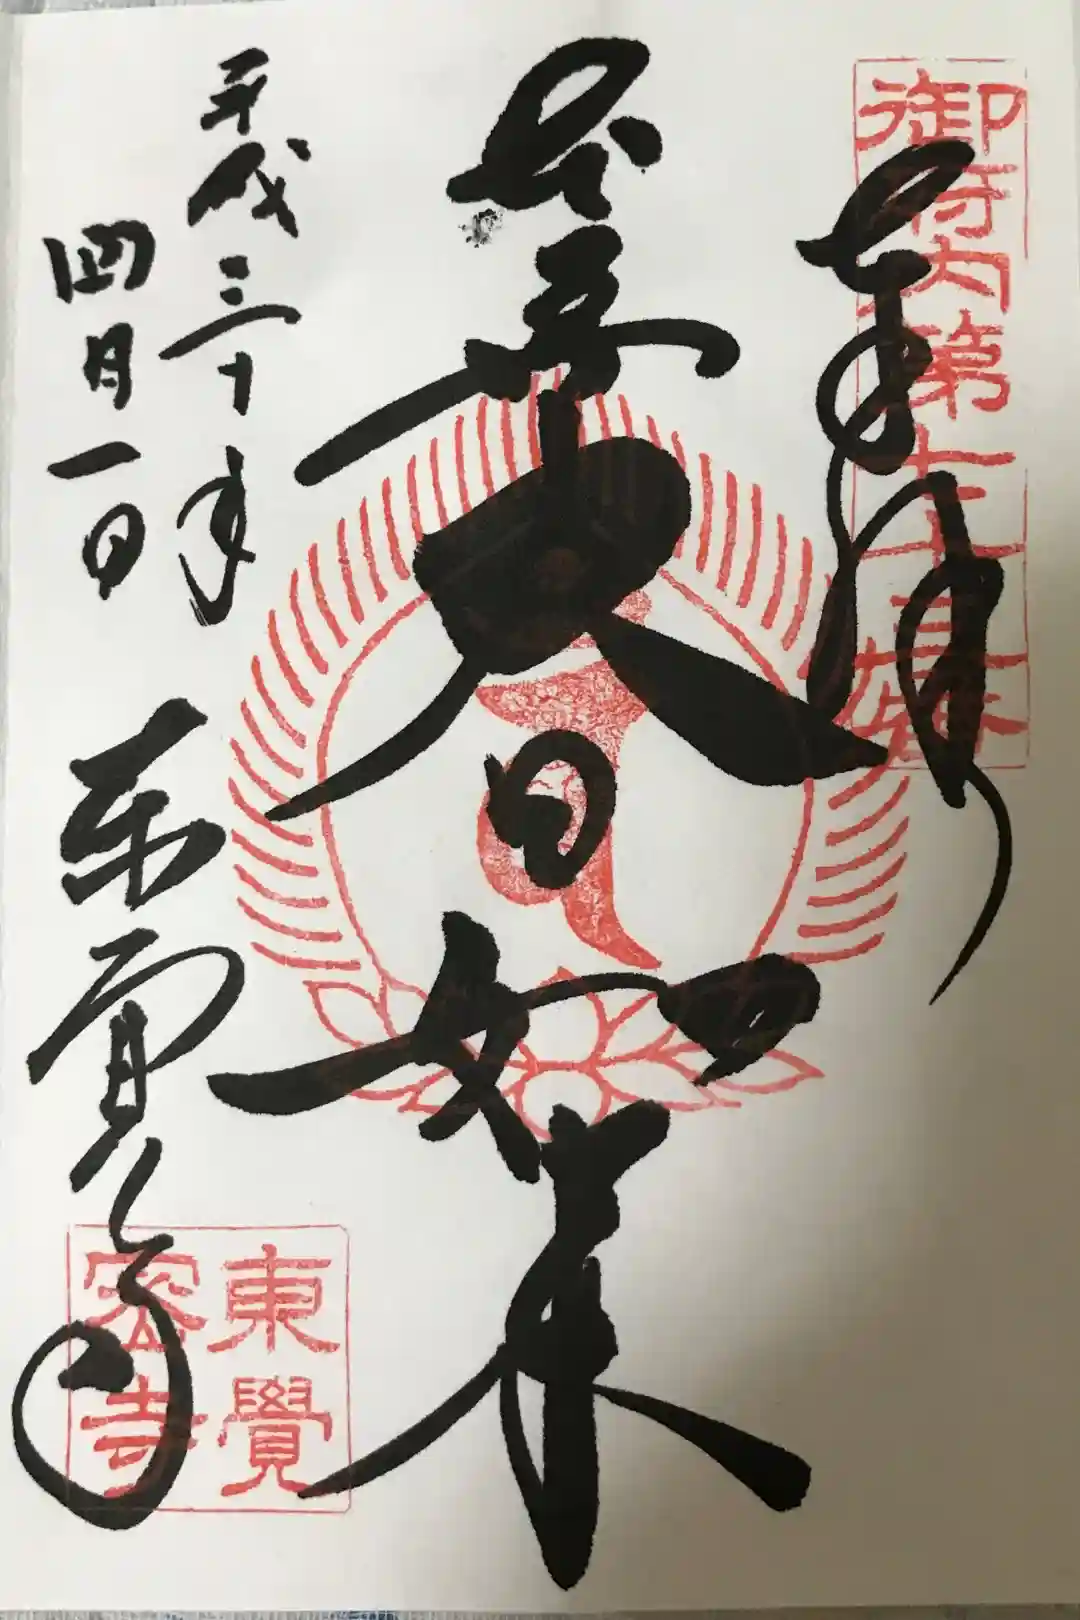 御府内第七十三番
奉拝
本尊
大日如来
平成三十年
四月一日
東覚寺
東覺
密寺